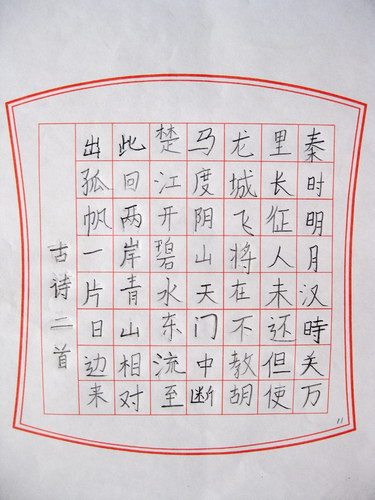 秦时明月汉時关万
里长征人未还但使
龙城飞将在不教胡
马度阴山天门中断
楚江开碧水东流至
此回两岸青山相对
出孤帆一片日边来
古诗二首
11